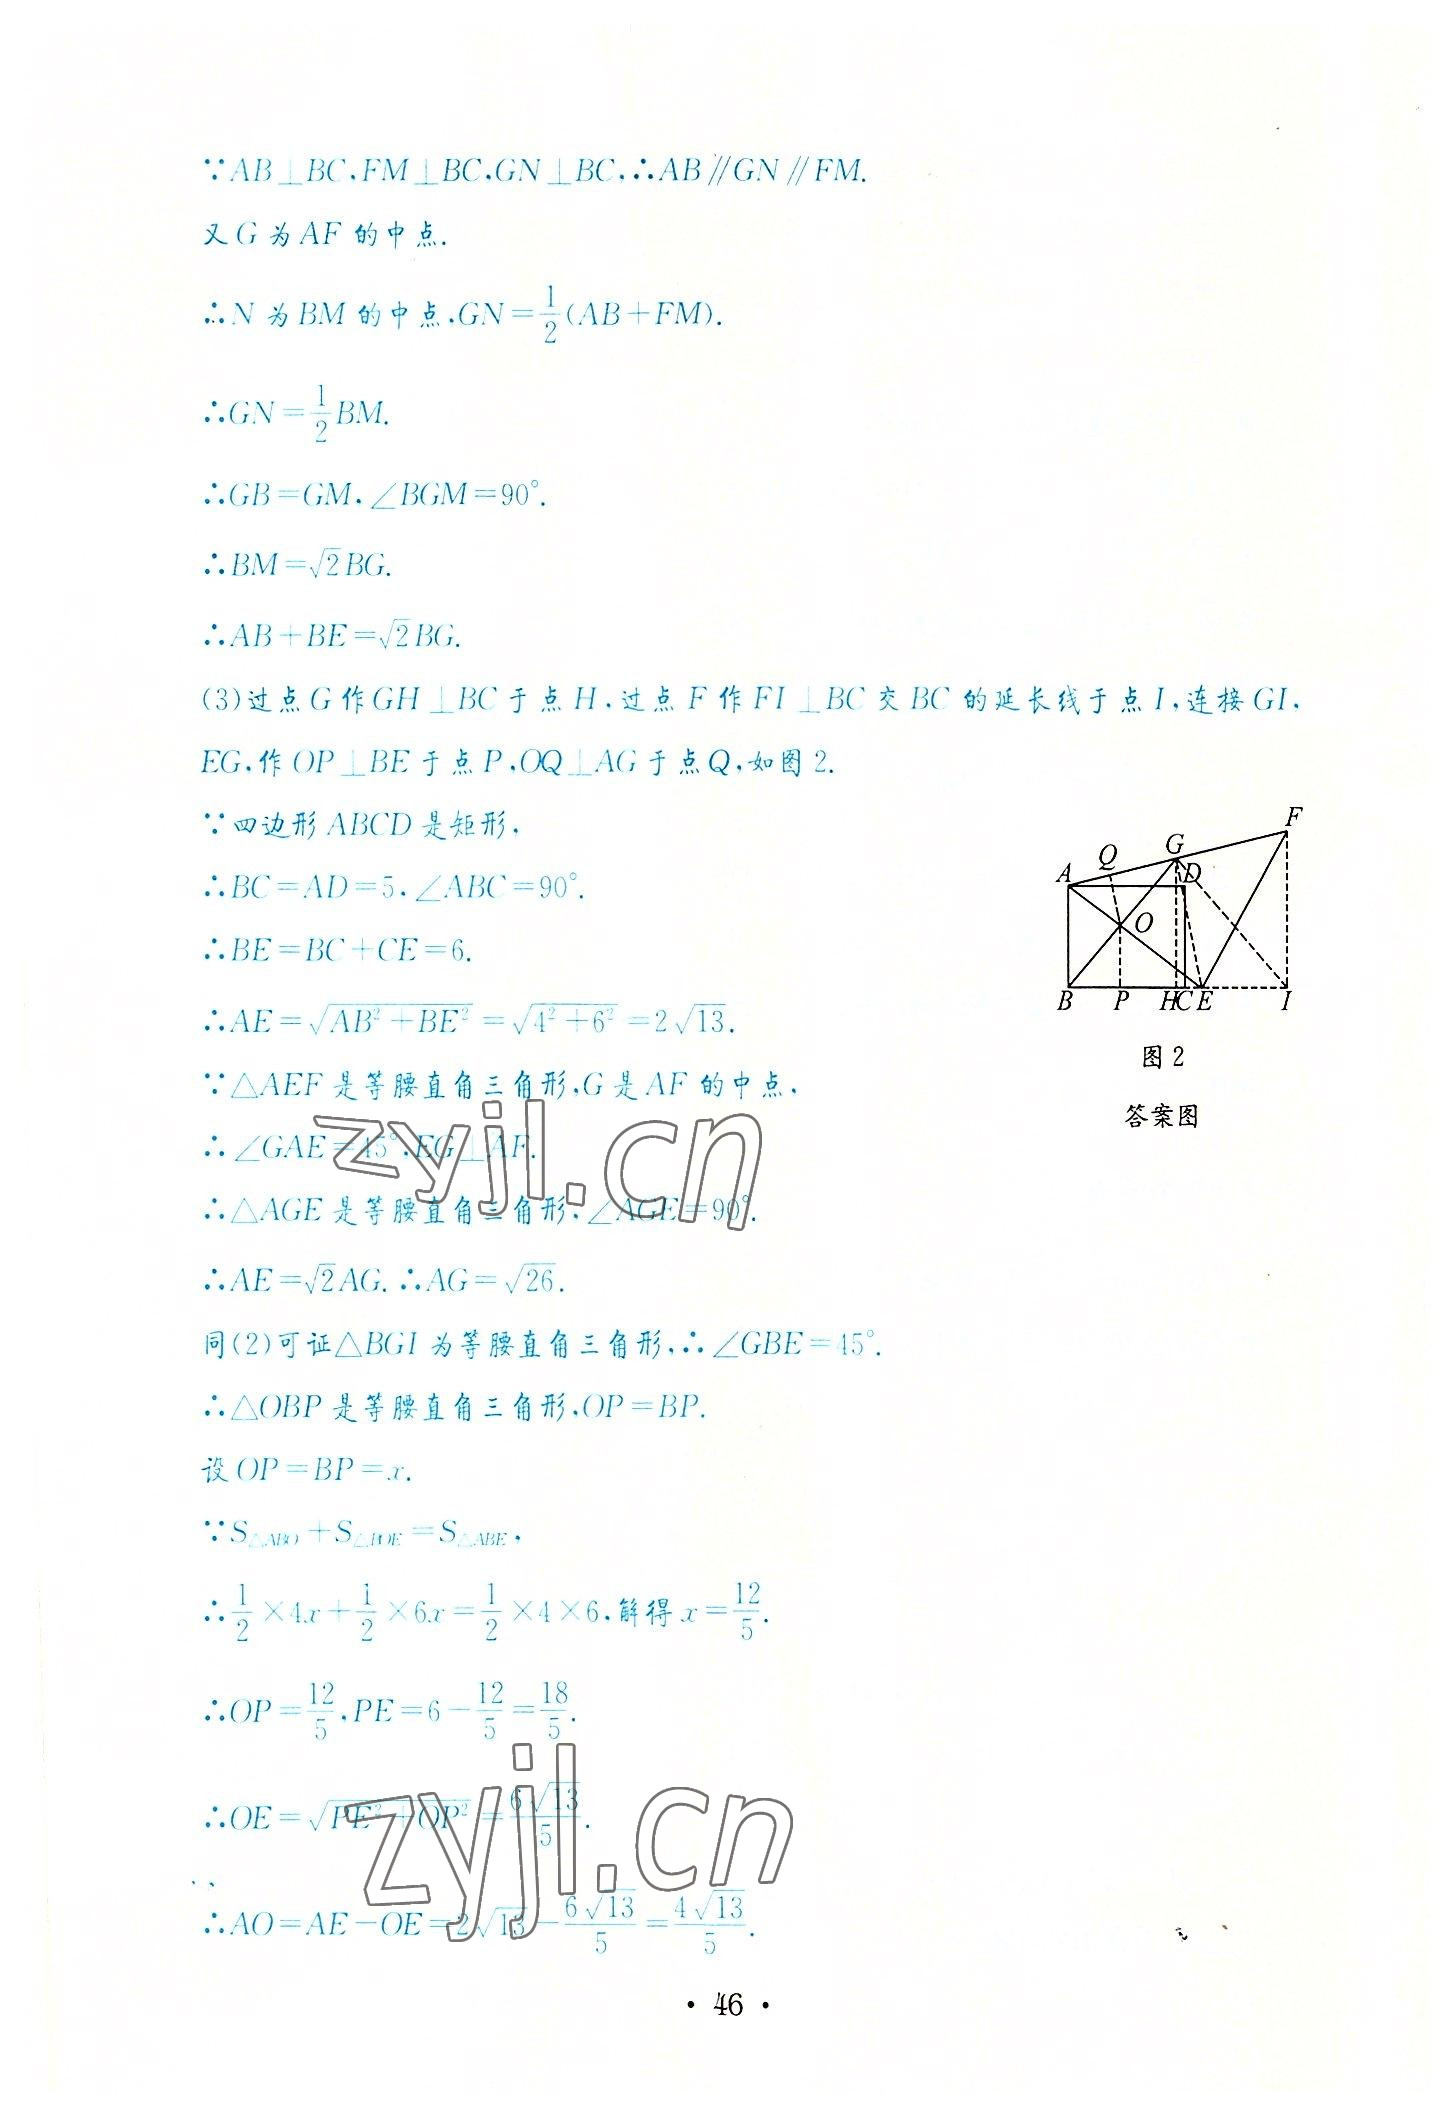 ∵AB⊥BC,FM⊥BC,GN⊥BC,∴AB∥GN∥FM.
又G为AF的中点.
∴N为BM的中点,GN=\frac{1}{2}(AB+FM).
∴GN=\frac{1}{2}BM.
∴GB=GM,∠BGM=90°.
∴BM=√2BG.
∴AB+BE=√2BG.
(3)过点G作GH⊥BC于点H,过点F作FI⊥BC交BC的延长线于点I,连接GI,
EG,作OP⊥BE于点P,OQ⊥AG于点Q,如图2.
∵四边形ABCD是矩形,
∴BC=AD=5,∠ABC=90°.
∴BE=BC+CE=6.
∴AE=\sqrt{AB²+BE²}=\sqrt{4²+6²}=2√13.
∵△AEF是等腰直角三角形,G是AF的中点,
∴∠GAE=45°,EG⊥AF.
∴△AGE是等腰直角三角形,∠AGE=90°.
∴AE=√2AG.∴AG=√26.
同(2)可证△BGI为等腰直角三角形,∴∠GBE=45°.
∴△OBP是等腰直角三角形,OP=BP.
设OP=BP=x.
∵S△ABO+S△BOE=S△ABE,
∴\frac{1}{2}×4x+\frac{1}{2}×6x=\frac{1}{2}×4×6,解得x=\frac{12}{5}.
∴OP=\frac{12}{5},PE=6-\frac{12}{5}=\frac{18}{5}.
∴OE=\sqrt{PE²+OP²}=\frac{6√13}{5}.
∴AO=AE-OE=2√13-\frac{6√13}{5}=\frac{4√13}{5}.
F
G
Q
A
D
O
B
P
H
C
E
I
图2
答案图
zyjl.cn
zyjl.cn
·46·